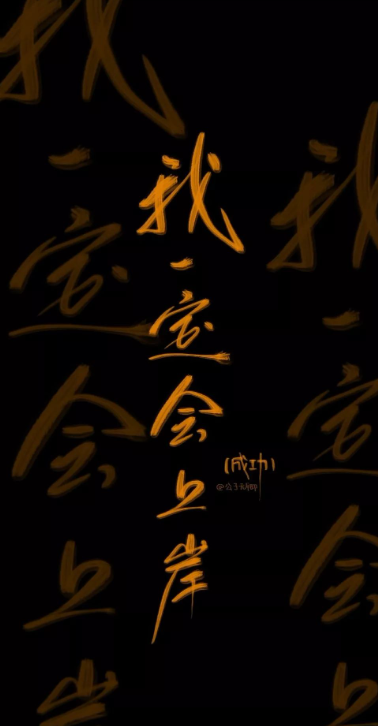 我一定会上岸
(成功)
我一定会上岸
我一定会